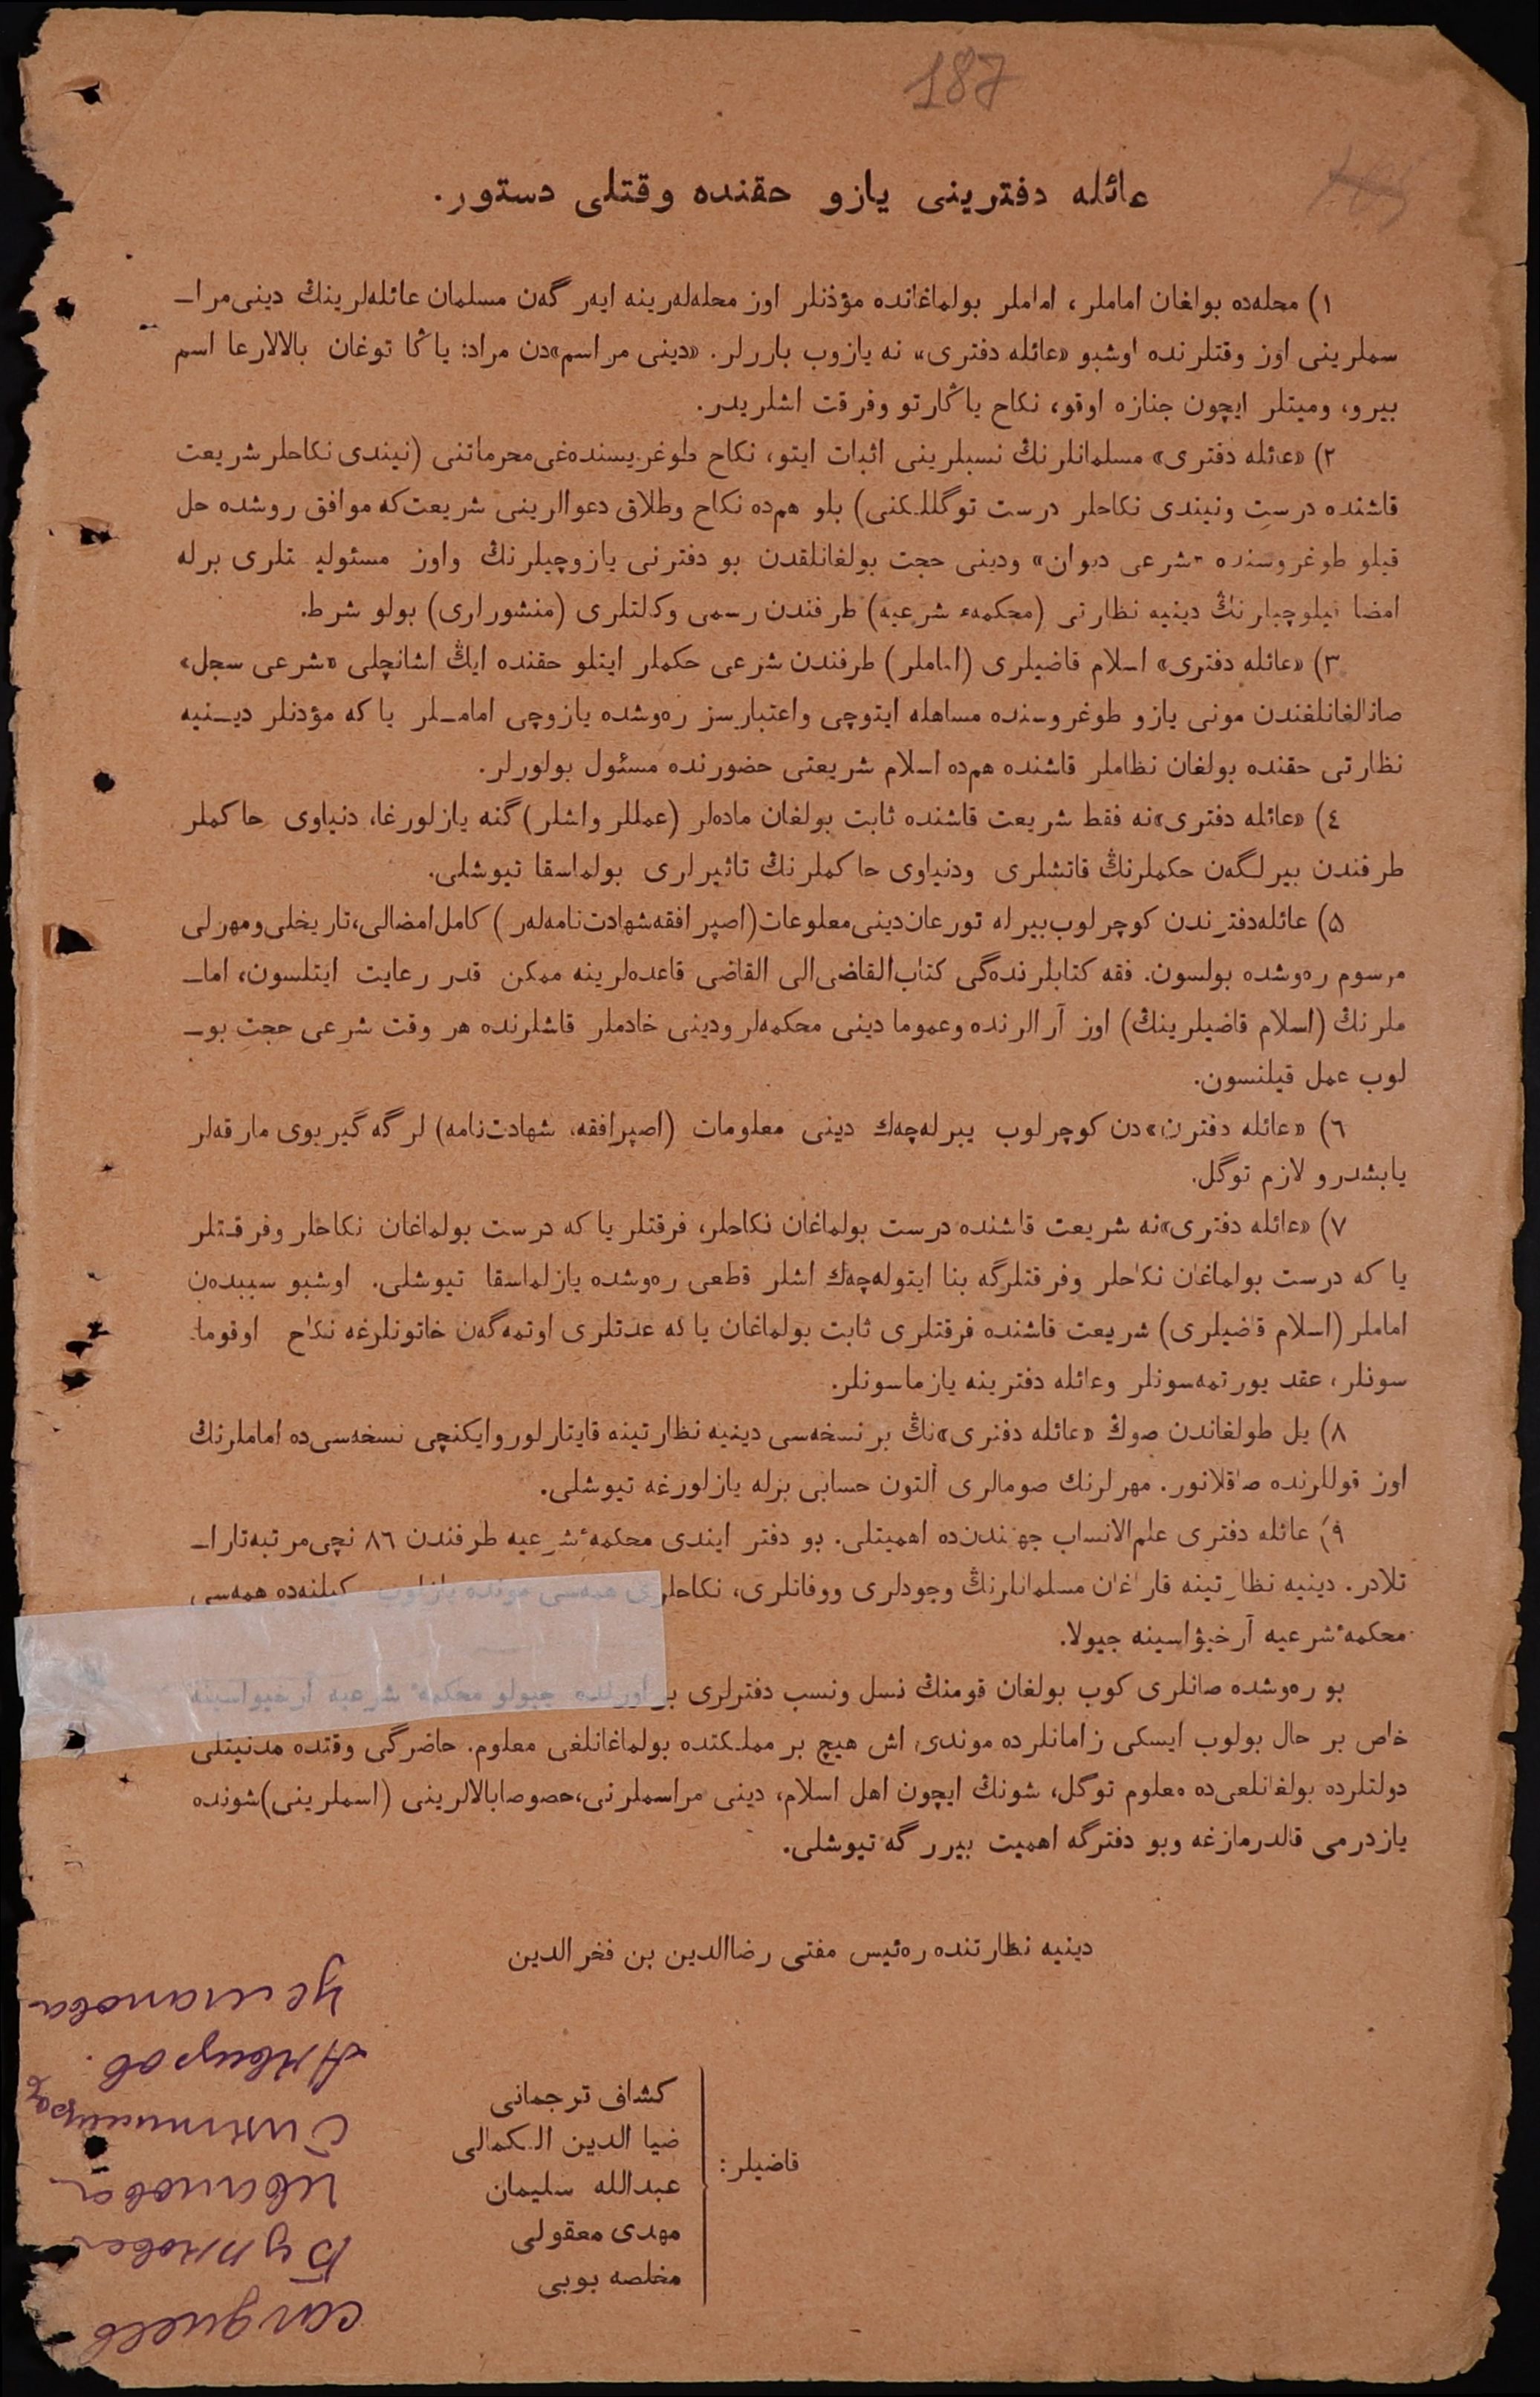 187
عائله دفترینی یازو حقنده وقتلی دستور.
١) محله‌ده بولغان اماملر، اماملر بولماغانده مؤذنلر اوز محله‌لەرینه ایەر گەن مسلمان عائله‌لرینڭ دینی مراـ
سملرینی اوز وقتلرنده اوشبو «عائله دفتری» نه یازوب باررلر. «دینی مراسم»دن مراد: یاڭا توغان بالالارعا اسم
بیرو، ومیتلر ایچون جنازه اوقو، نکاح یاڭارتو وفرقت اشلریدر.
٢) «عائله دفتری» مسلمانلرنڭ نسبلرینی اثبات ایتو، نکاح طوغریسنده‌غی محرماتنی (نیندی نکاحلر شریعت
قاشنده درست ونیندی نکاحلر درست توگللـکنی) بلو هم‌ده نکاح وطلاق دعوالرینی شریعت‌که موافق روشده حل
قیلو طوغروسنده «شرعی دیوان» ودینی حجت بولغانلقدن بو دفترنی یازوچیلرنڭ واوز مسئولیتلری برله
امضا قیلوچیلرنڭ دینیه نظارتی (محکمهء شرعیه) طرفندن رسمی وکالتلری (منشورلری) بولو شرط.
٣) «عائله دفتری» اسلام قاضیلری (اماملر) طرفندن شرعی حکملر ایتلو حقنده ایڭ اشانچلی «شرعی سجل»
صانالغانلغندن مونی یازو طوغروسنده مساهله ایتوچی واعتبارسز رەوشده یازوچی امامـلر یا که مؤذنلر دیـنیه
نظارتی حقنده بولغان نظاملر قاشنده هم‌ده اسلام شریعتی حضورنده مسئول بولورلر.
٤) «عائله دفتری»نه فقط شریعت قاشنده ثابت بولغان ماده‌لر (عمللر واشلر) گنه یازلورغا، دنیاوی حاکملر
طرفندن بیرلـگەن حکملرنڭ قاتشلری ودنیاوی حاکملرنڭ تاثیرلری بولماسقا تیوشلی.
۵) عائله‌دفترندن کوچرلوب بیرله تورعان دینی معلوعات (اصپرافقه شهادت‌نامه‌لەر) کامل امضالی، تاریخلی ومهرلی
مرسوم رەوشده بولسون. فقه کتابلرنده‌گی کتاب‌القاضی الی القاضی قاعده‌لرینه ممکن قدر رعایت ایتلسون، اماـ
ملرنڭ (اسلام قاضیلرینڭ) اوز آرالرنده وعموما دینی محکمه‌لر ودینی خادملر قاشلرنده هر وقت شرعی حجت بوـ
لوب عمل قیلنسون.
٦) «عائله دفترن»دن کوچرلوب بیرله‌چەك دینی معلومات (اصپرافقه، شهادت‌نامه) لرگه گیربوی مارقه‌لر
یابشدرو لازم توگل.
٧) «عائله دفتری»نه شریعت قاشنده درست بولماغان نکاحلر، فرقتلر یا که درست بولماغان نکاحلر وفرقـتلر
یا که درست بولماغان نکاحلر وفرقتلرگه بنا ایتوله‌چەك اشلر قطعی رەوشده یازلماسقا تیوشلی. اوشبو سببدەن
اماملر (اسلام قاضیلری) شریعت قاشنده فرقتلری ثابت بولماغان یا که عدتلری اوتمه‌گەن خاتونلرغه نکاح اوقوما
سونلر، عقد یورتمه‌سونلر وعائله دفترینه یازماسونلر.
٨) یل طولغاندن صوڭ «عائله دفتری»نڭ بر نسخه‌سی دینیه نظارتینه قایتارلور وایکنچی نسخه‌سی‌ده اماملرنڭ
اوز قوللرنده صاقلانور. مهرلرنڭ صومالری آلتون حسابی برله یازلورغه تیوشلی.
٩) عائله دفتری علم‌الانساب جهتندن‌ده اهمیتلی. بو دفتر ایندی محکمهٔ شرعیه طرفندن ٨٦ نچی مرتبه تاراـ
تلادر. دینیه نظارتینه قاراغان مسلمانلرنڭ وجودلری ووفاتلری، نکاحلری همەسی مونده یازلوب کیلنەده همەسی
محکمهٔ شرعیه آرخیۋاسینه جیولا.
بو رەوشده صانلری کوب بولغان قومنڭ نسل ونسب دفترلری بر اورنده جیولو محکمهٔ شرعیه آرخیواسینه
خاص بر حال بولوب ایسکی زامانلرده موندی اش هیچ بر مملـکتده بولماغانلغی معلوم. حاضرگی وقتده مدنیتلی
دولتلرده بولغانلعی‌ده معلوم توگل، شونڭ ایچون اهل اسلام، دینی مراسملرنی، حصوصا بالالرینی (اسملرینی) شونده
یازدرمی قالدرمازغه وبو دفترگه اهمیت بیررگه تیوشلی.
دینیه نظارتنده رەئیس مفتی رضاالدین بن فخرالدین
قاضیلر:
کشاف ترجمانی
ضیا الدین الـکمالی
عبدالله سلیمان
مهدی معقولی
مخلصه بوبی
Усманова
Иванова